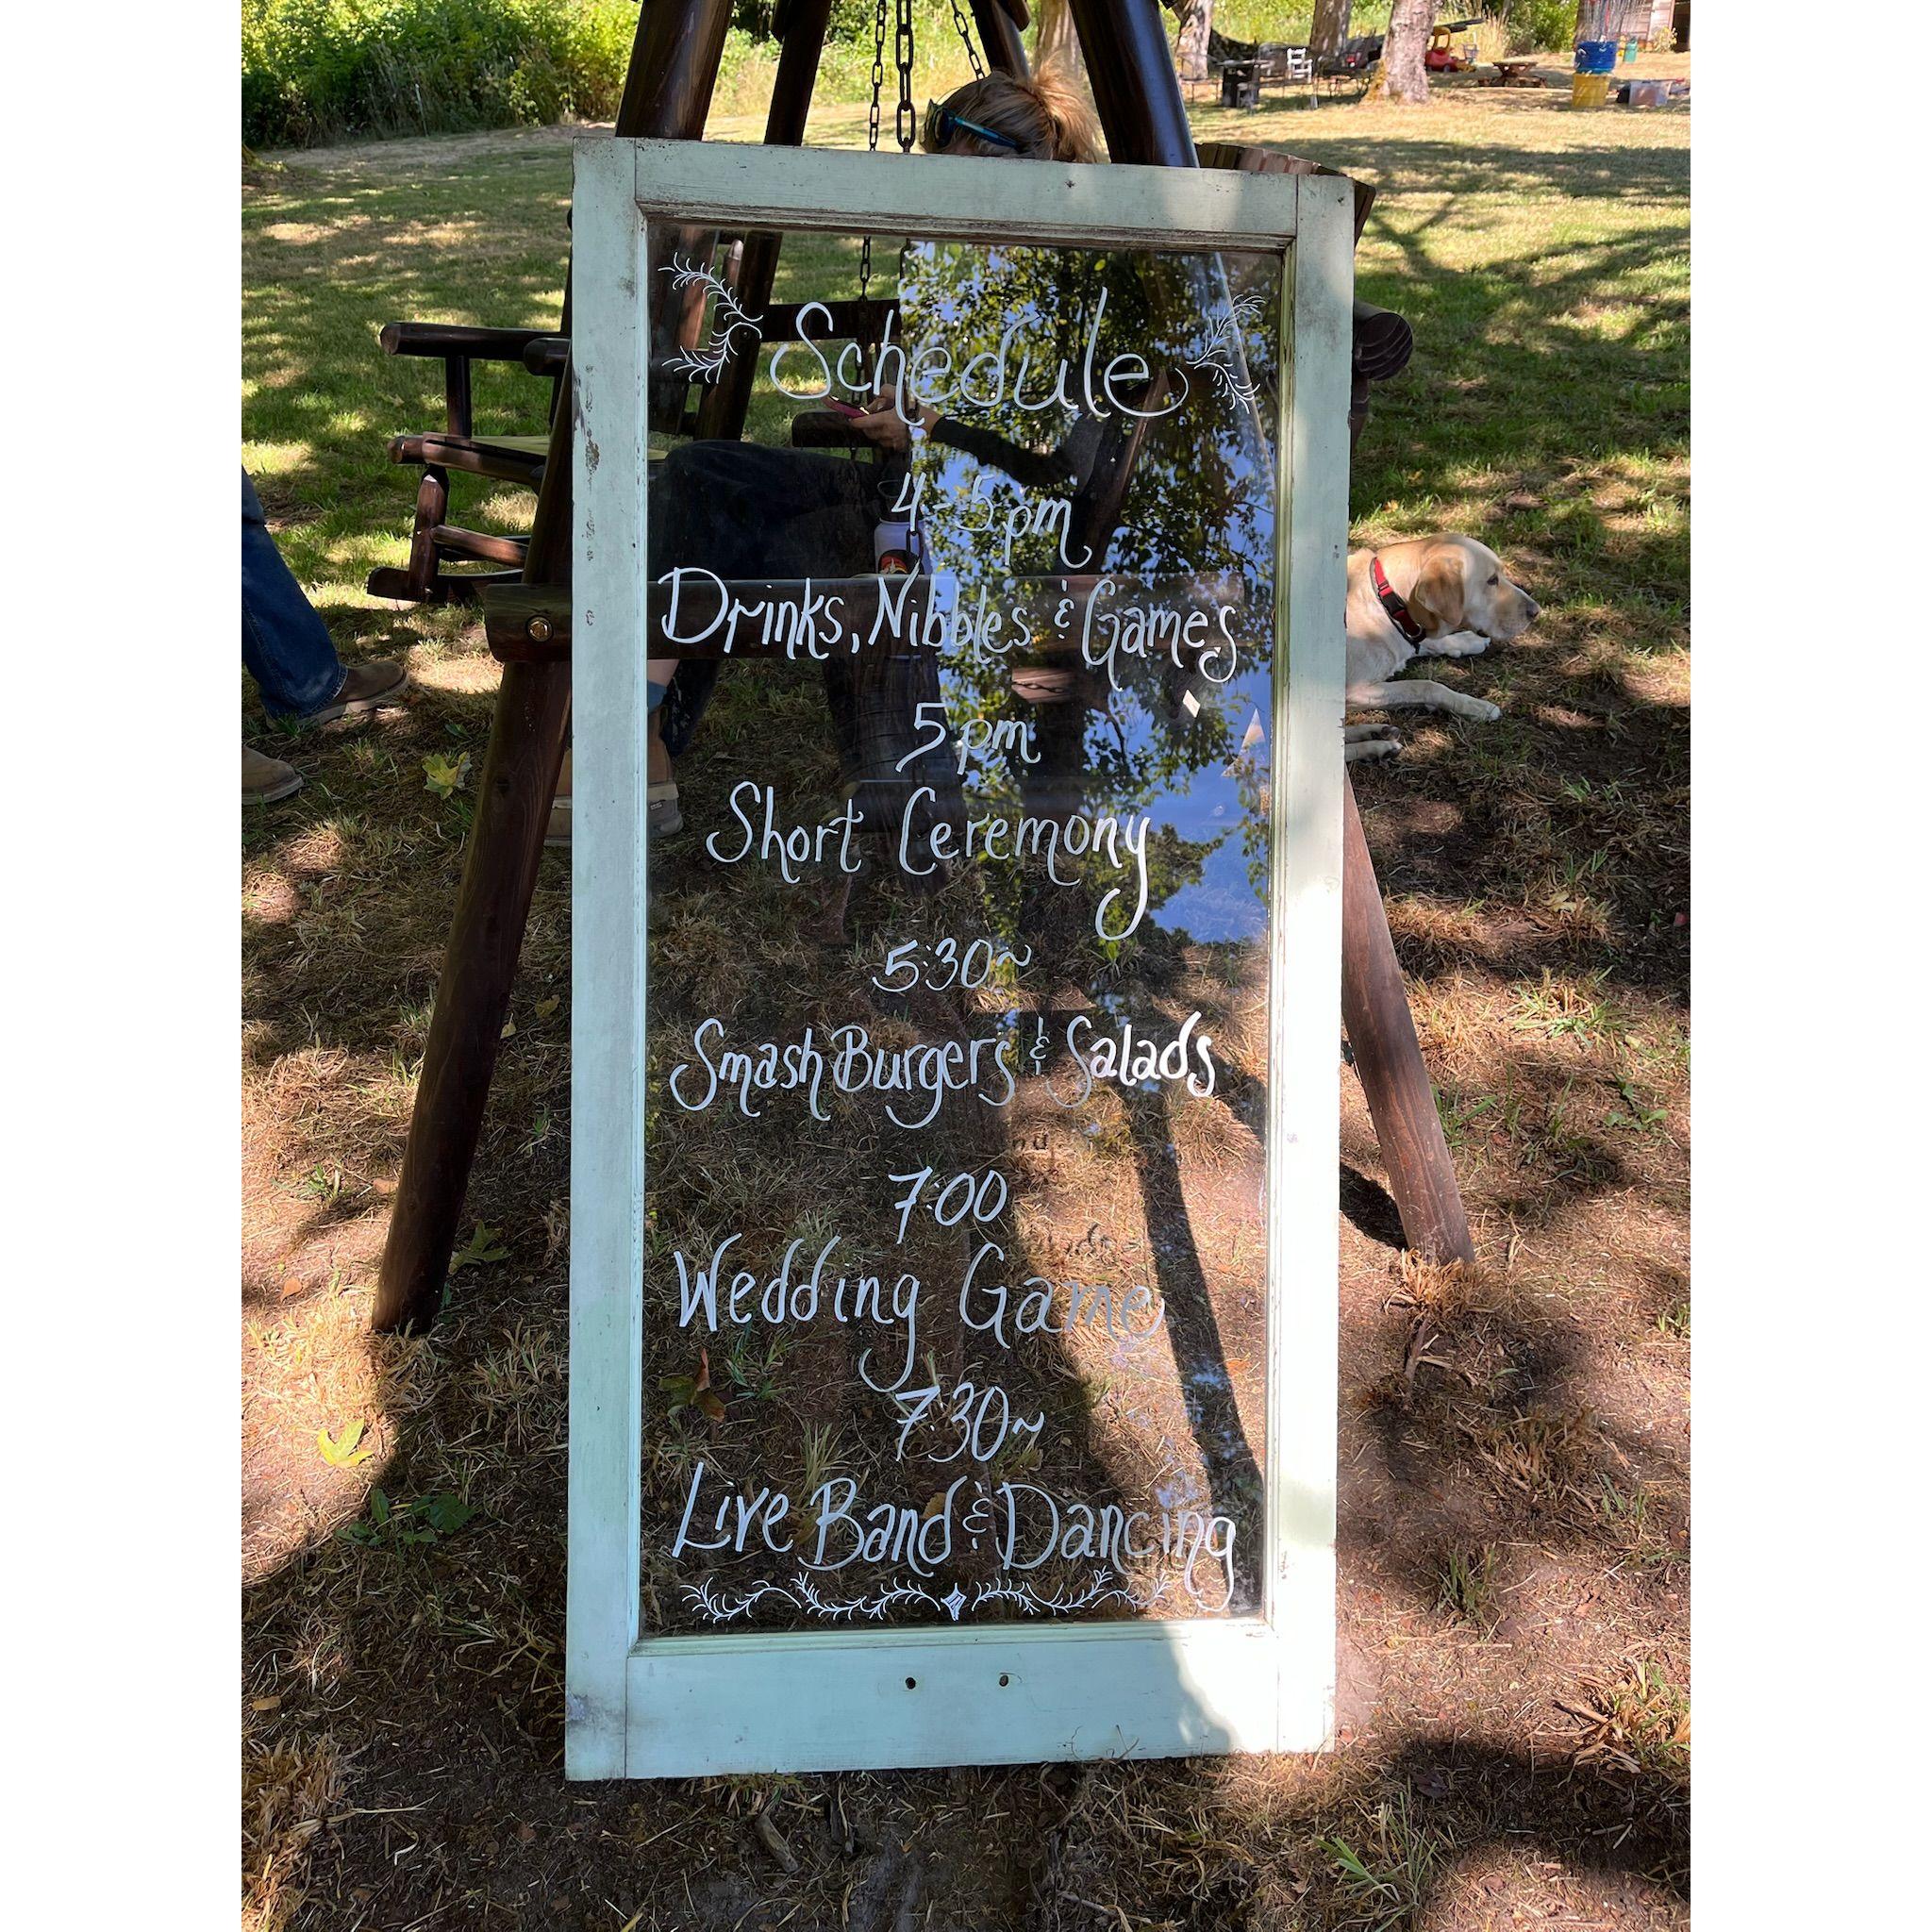 Schedule
4-5pm
Drinks, Nibbles & Games
5pm
Short Ceremony
5:30~
Smash Burgers & Salads
7:00
Wedding Game
7:30~
Live Band & Dancing